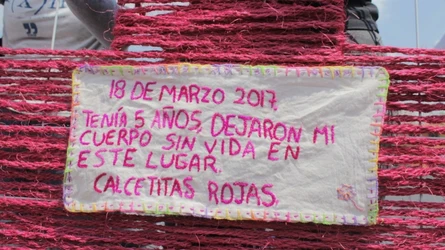 18 DE MARZO 2017,
TENÍA 5 AÑOS, DEJARON MI
CUERPO SIN VIDA EN
ESTE LUGAR.
CALCETITAS ROJAS.